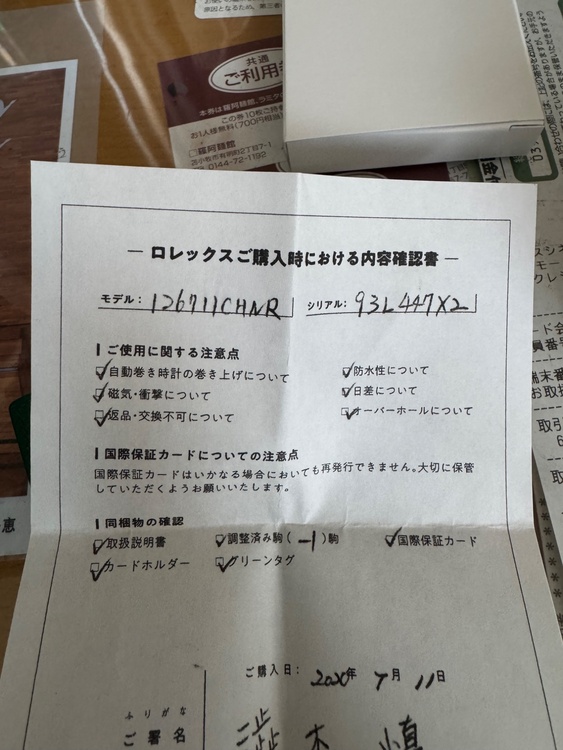 原因となるため、第三者
共通
ご利用券
本券は羅阿麺館、ラミタ
この券10枚ご持参
お1人様無料(700円相当)
□羅阿麺館
苫小牧市有明町2丁目7-1
0144-72-1192
― ロレックスご購入時における内容確認書 ―
モデル: 126711CHNR シリアル: 93L447X2
ご使用に関する注意点
自動巻き時計の巻き上げについて 防水性について
磁気・衝撃について 日差について
返品・交換不可について オーバーホールについて
国際保証カードについての注意点
国際保証カードはいかなる場合においても再発行できません。大切に保管
していただくようお願いいたします。
同梱物の確認
取扱説明書 調整済み駒(-1)駒 国際保証カード
カードホルダー グリーンタグ
ご購入日: 年 7月 11日
ふりがな
ご署名